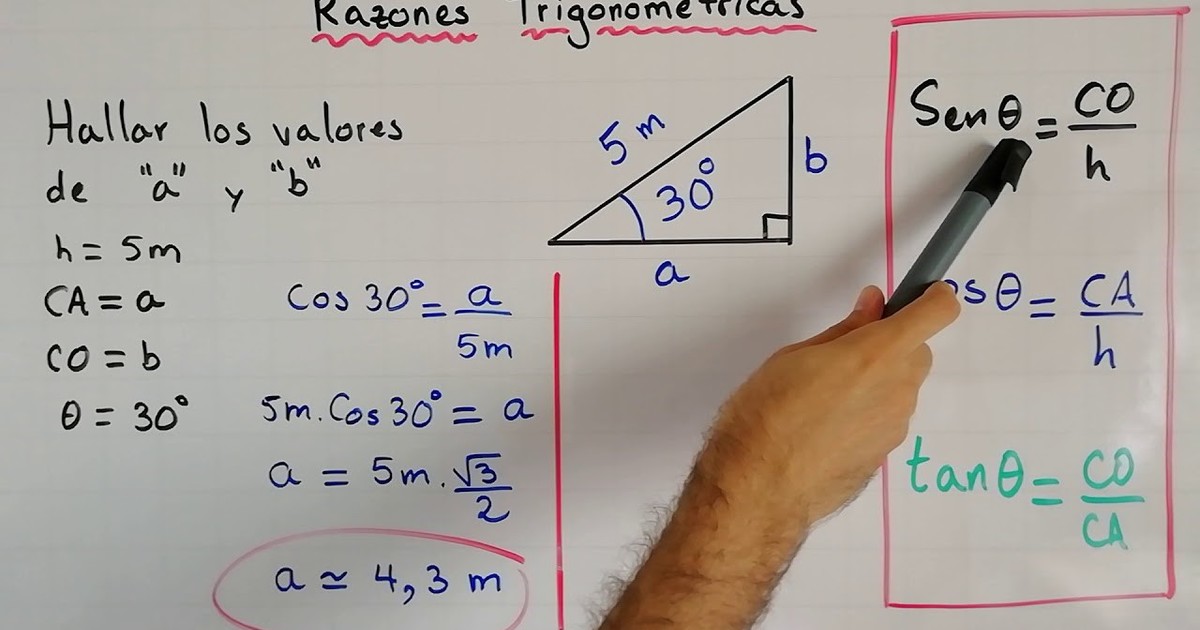 Razones Trigonométricas
Hallar los valores
de "a" y "b"
h = 5m
CA = a
CO = b
θ = 30°
Cos 30° = a / 5m
5m . Cos 30° = a
a = 5m . √3 / 2
a ≃ 4,3 m
5 m
30°
b
a
Sen θ = CO / h
os θ = CA / h
tan θ = CO / CA